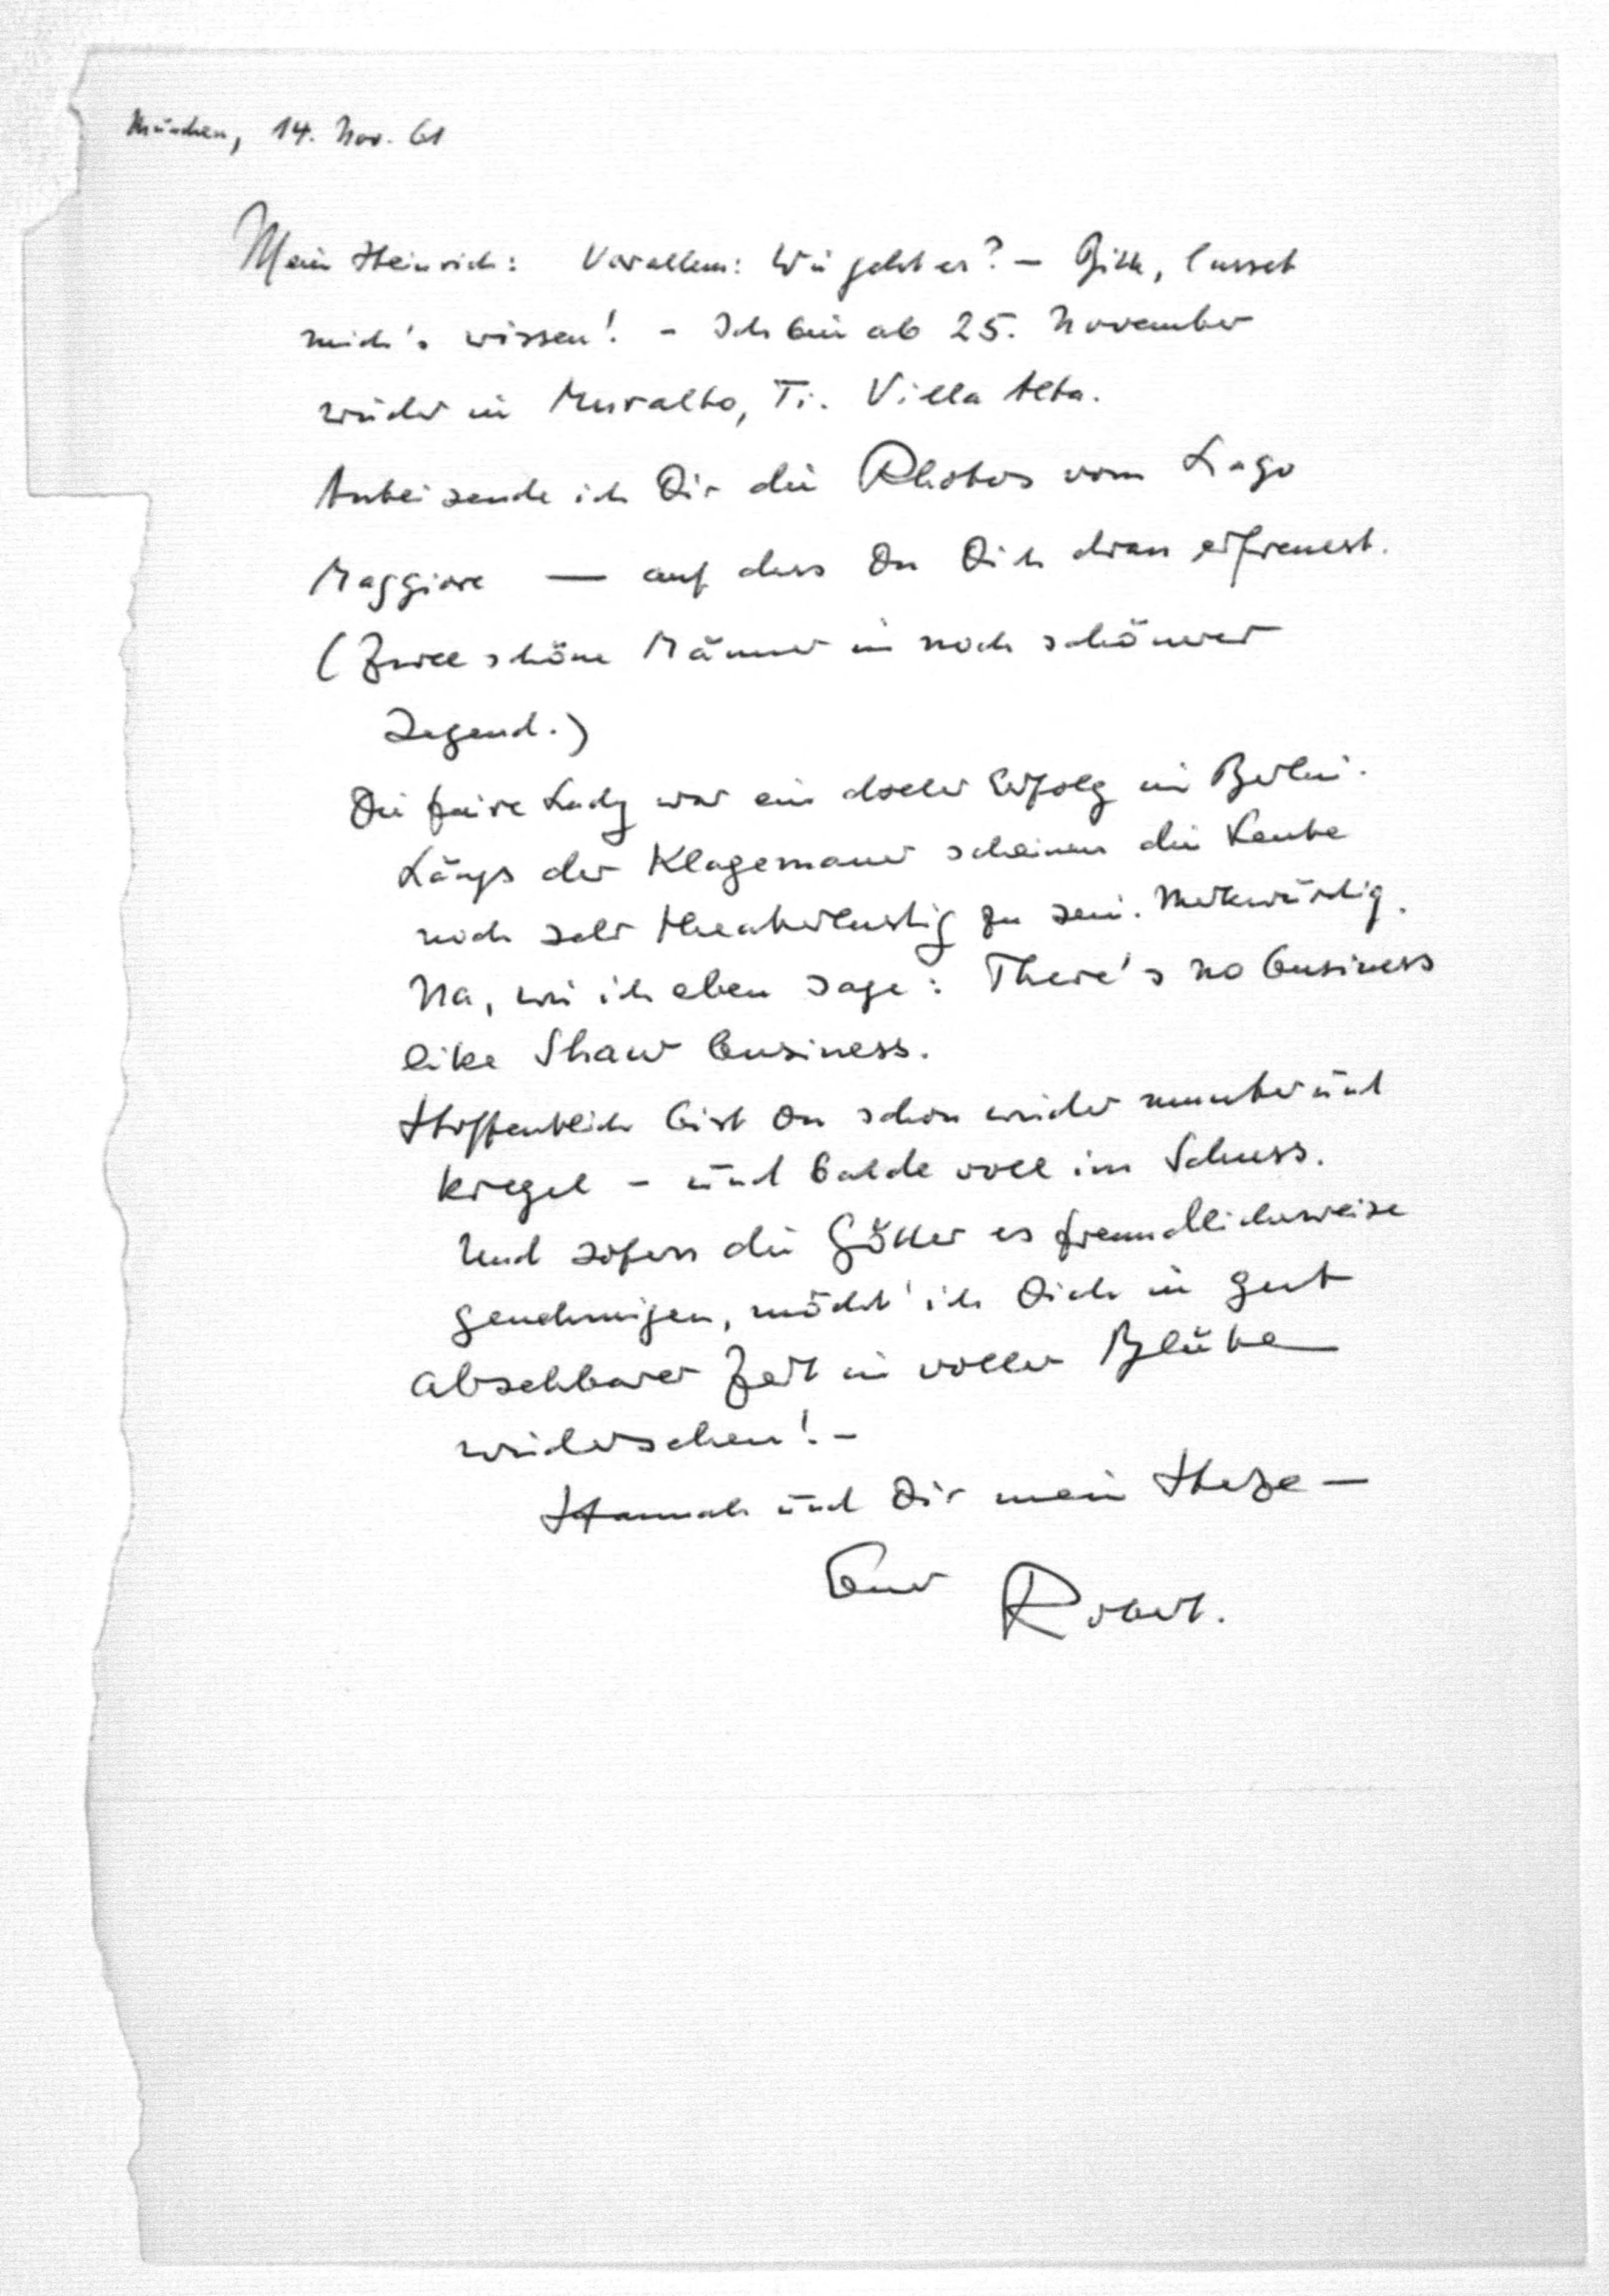 München, 14. Nov. 61
Mein Heinrich: Vorallem: Wie geht es? – Bitte, lasset
mich's wissen! – Ich bin ab 25. November
wieder in Muralto, Ti. Villa Alta.
Anbei sende ich Dir die Photos vom Lago
Maggiore — auf dass Du Dich dran erfreuest.
(Zwee schöne Männer in noch schönerer
Jegend.)
Die faire Lady war ein doller Erfolg in Berlin.
Längs der Klagemauer scheinen die Leute
noch sehr theaterlustig zu sein. Merkwürdig.
Na, wie ich eben sage: There's no business
like Shaw business.
Hoffentlich bist Du schon wieder munter und
kregel – und balde voll im Schuss.
Und sofern die Götter es freundlicherweise
genehmigen, möcht' ich Dich in gut
absehbarer Zeit in voller Blüte
wiedersehen! –
Hannah und Dir mein Herze –
Euer Robert.